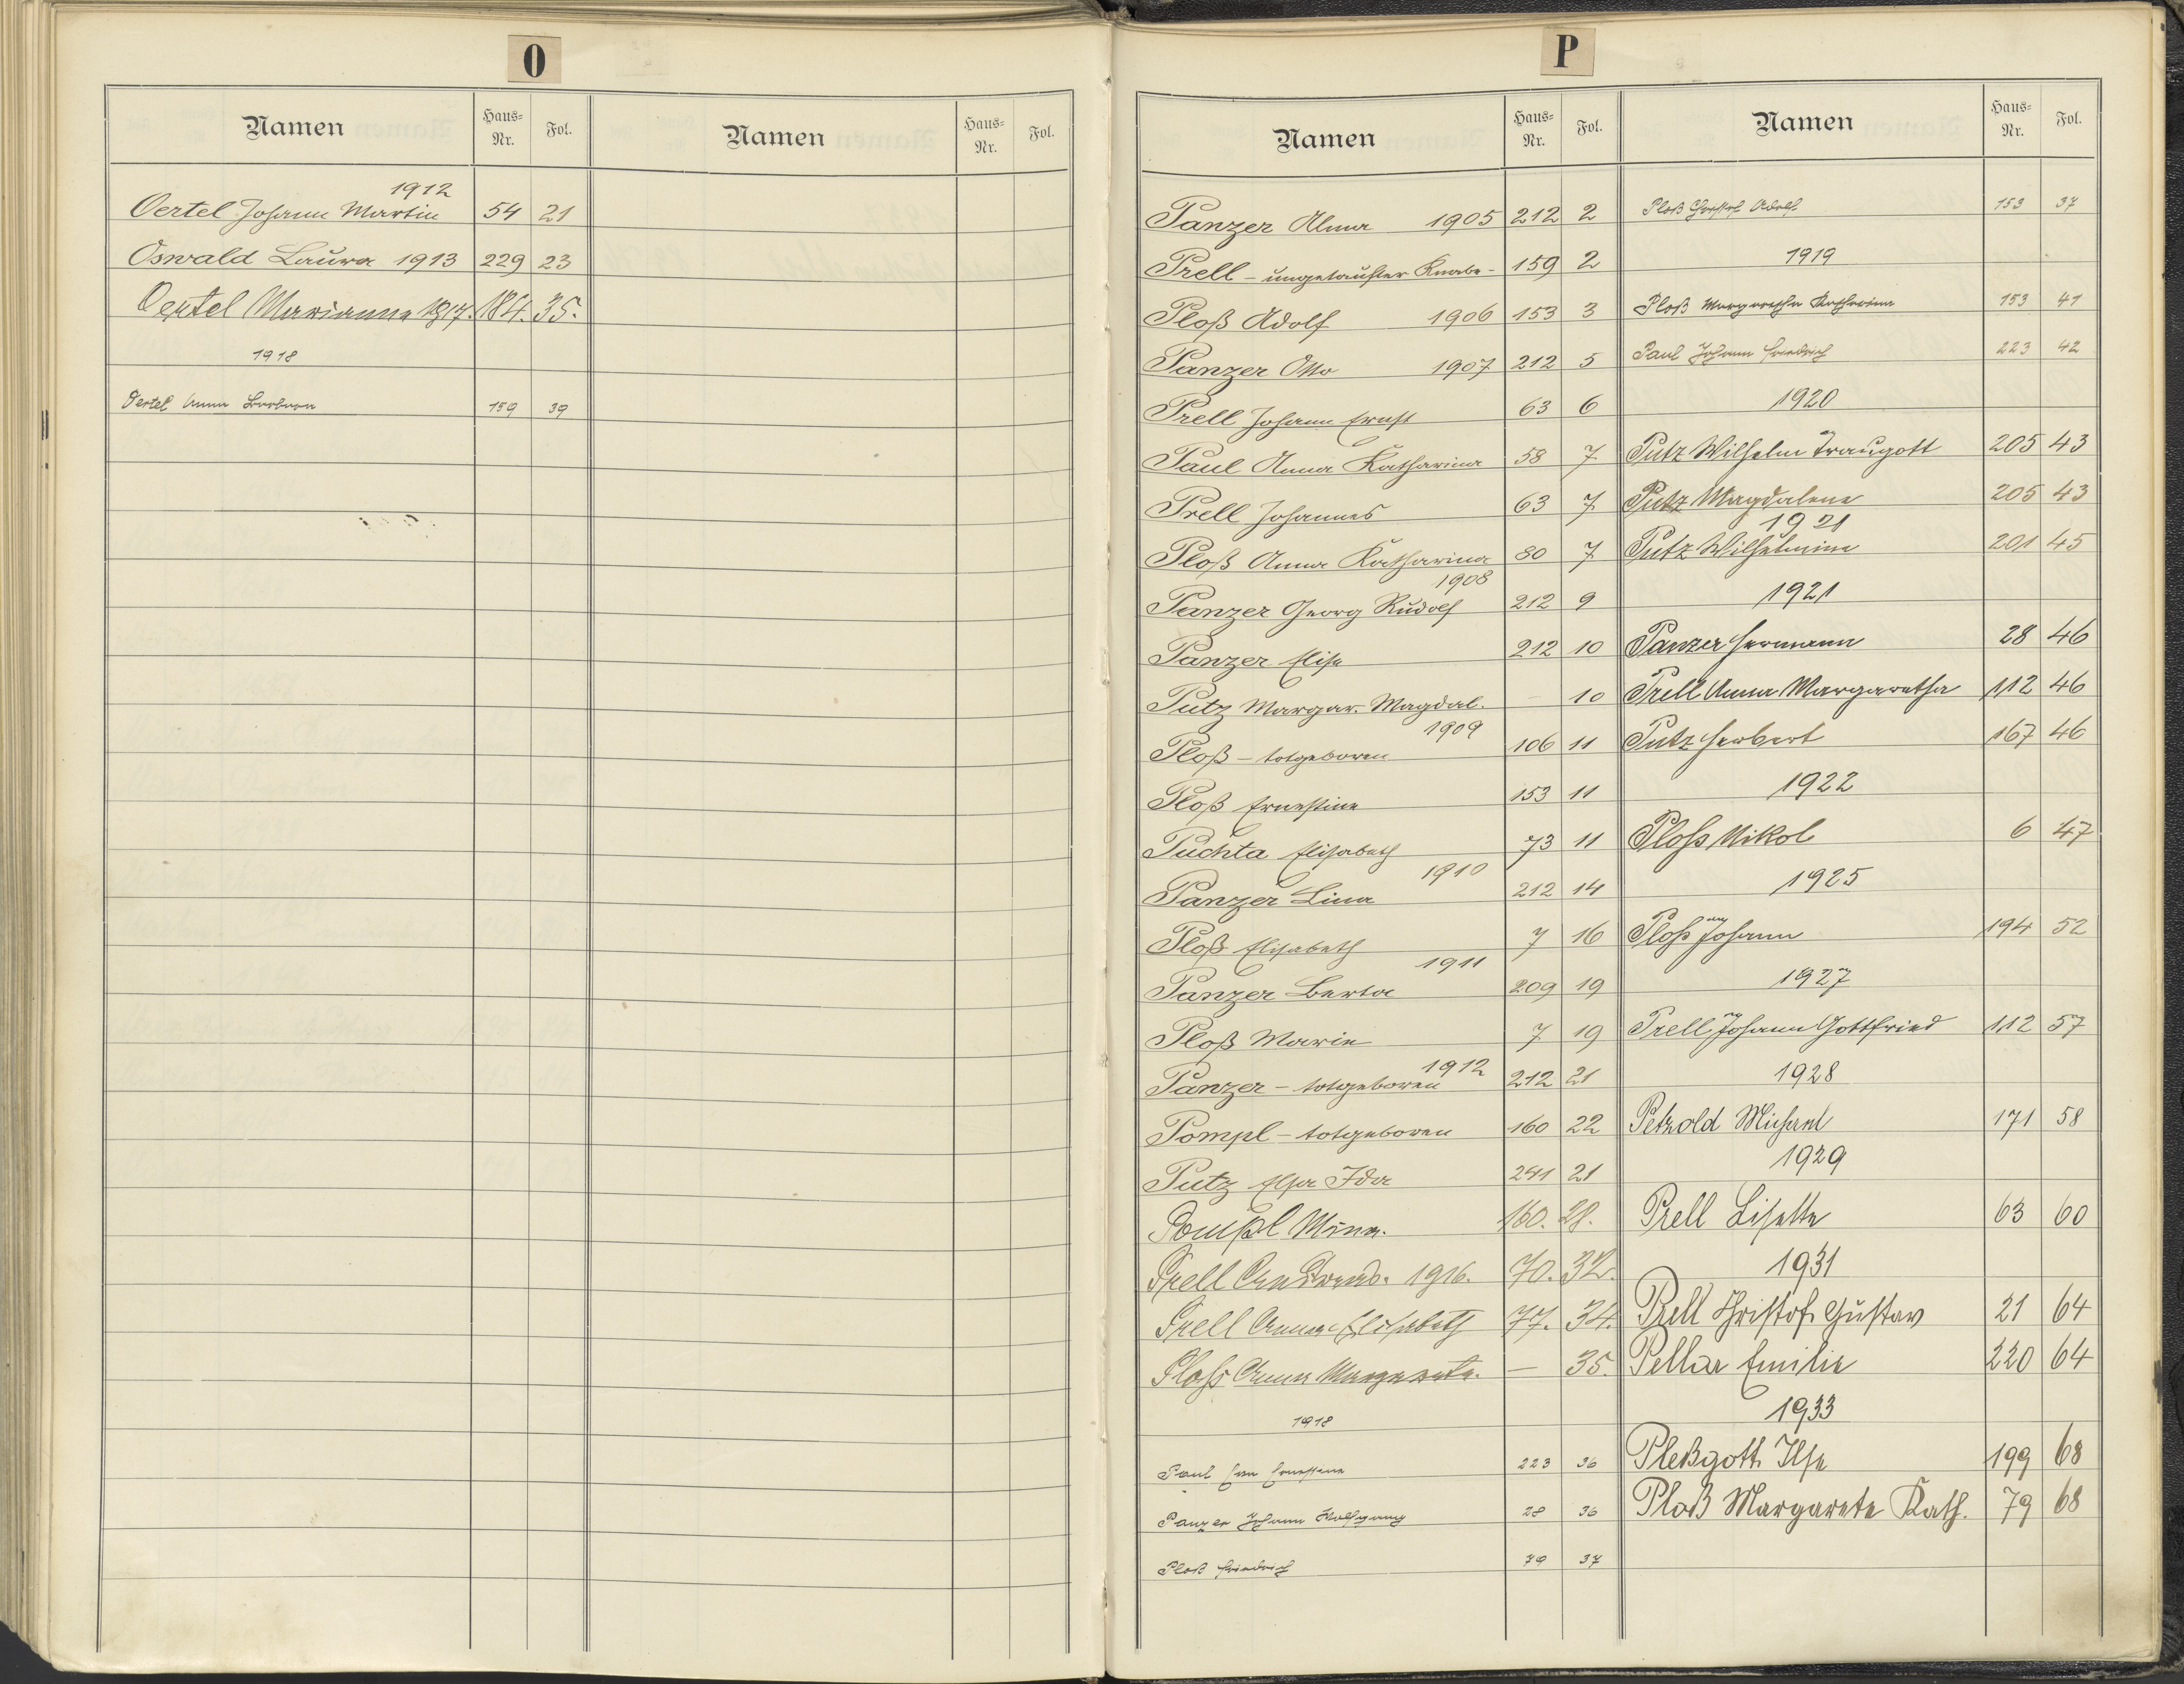 O
Namen Haus-Nr. Fol. Namen Haus-Nr. Fol.
1912
Oertel Johann Martin 54 21
Oswald Laura 1913 229 23
Oertel Marianna 1917. 184. 35.
1918
Oertel Anna Barbara 159 39
P
Namen Haus-Nr. Fol.
Panzer Alma 1905 212 2
Prell - ungetaufter Knabe - 159 2
Ploß Adolf 1906 153 3
Panzer Otto 1907 212 5
Prell Johann Ernst 63 6
Paul Anna Katharina 58 7
Prell Johannes 63 7
Ploß Anna Katharina 80 7
1908
Panzer Georg Rudolf 212 9
Panzer Elise 212 10
Putz Margar. Magdal. — 10
1909
Ploß - totgeboren 106 11
Ploß Ernestine 153 11
Puchta Elisabeth 73 11
1910
Panzer Lina 212 14
Ploß Elisabeth 7 16
1911
Panzer Berta 209 19
Ploß Marie 7 19
1912
Panzer - totgeboren 212 21
Pompl - totgeboren 160 22
Putz Elsa Ida 241 21
Pompl Minna. 160. 28.
Prell 1916. 70. 32.
Prell Anna Elisabeth 77. 34.
Ploß Anna Margareta. — 35.
1918
Paul Ernestine 223 36
Panzer Johann Wolfgang 28 36
Ploß Friedrich 79 37
Namen Haus-Nr. Fol.
Ploß Christof Adolf 153 37
1919
Ploß Margaretha Katharina 153 41
Paul Johann Friedrich 223 42
1920
Putz Wilhelm Traugott 205 43
Putz Magdalena 205 43
1921
Putz Wilhelmine 201 45
1921
Panzer Hermann 28 46
Prell Anna Margaretha 112 46
Putz Herbert 167 46
1922
Ploß Nikol 6 47
1925
Ploß Johann 194 52
1927
Prell Johann Gottfried 112 57
1928
Petzold Michael 171 58
1929
Prell Lisette 63 60
1931
Prell Christof Gustav 21 64
Pellar Emilie 220 64
1933
Pleßgott Ilse 199 68
Ploß Margarete Kath. 79 68